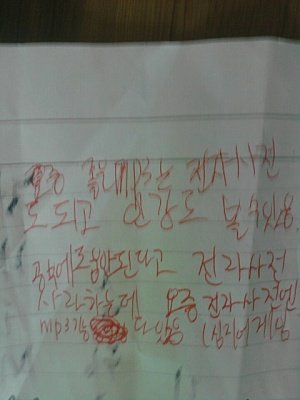 요즘 좋은 MP3는 전자사전
도 되고 인강도 볼수있음
공부에 도움안된다고 전자사전
사라하는데 요즘 전자사전엔
mp3기능 다 있음 (심지어게임